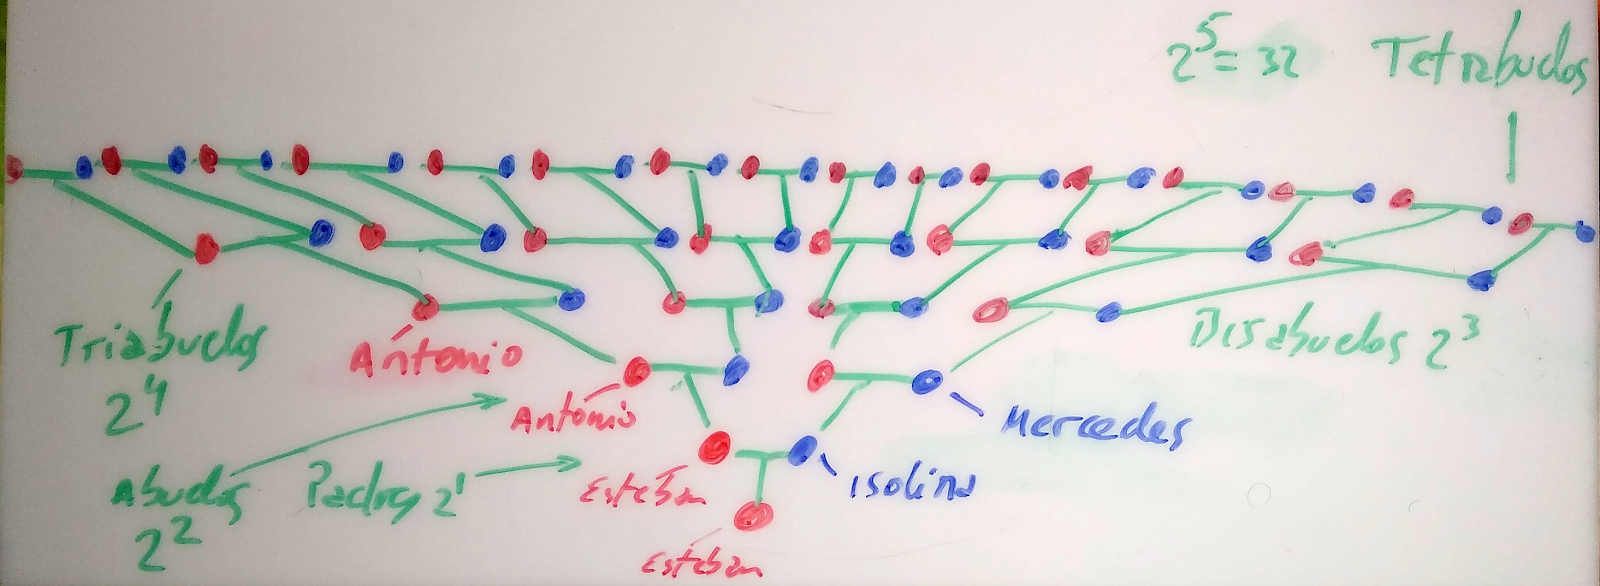 2^5 = 32
Tetrabuelos
Triabuelos
2^4
Antonio
Bisabuelos 2^3
Antonio
Mercedes
Abuelos
2^2
Padres 2^1
Esteban
Isolina
Esteban